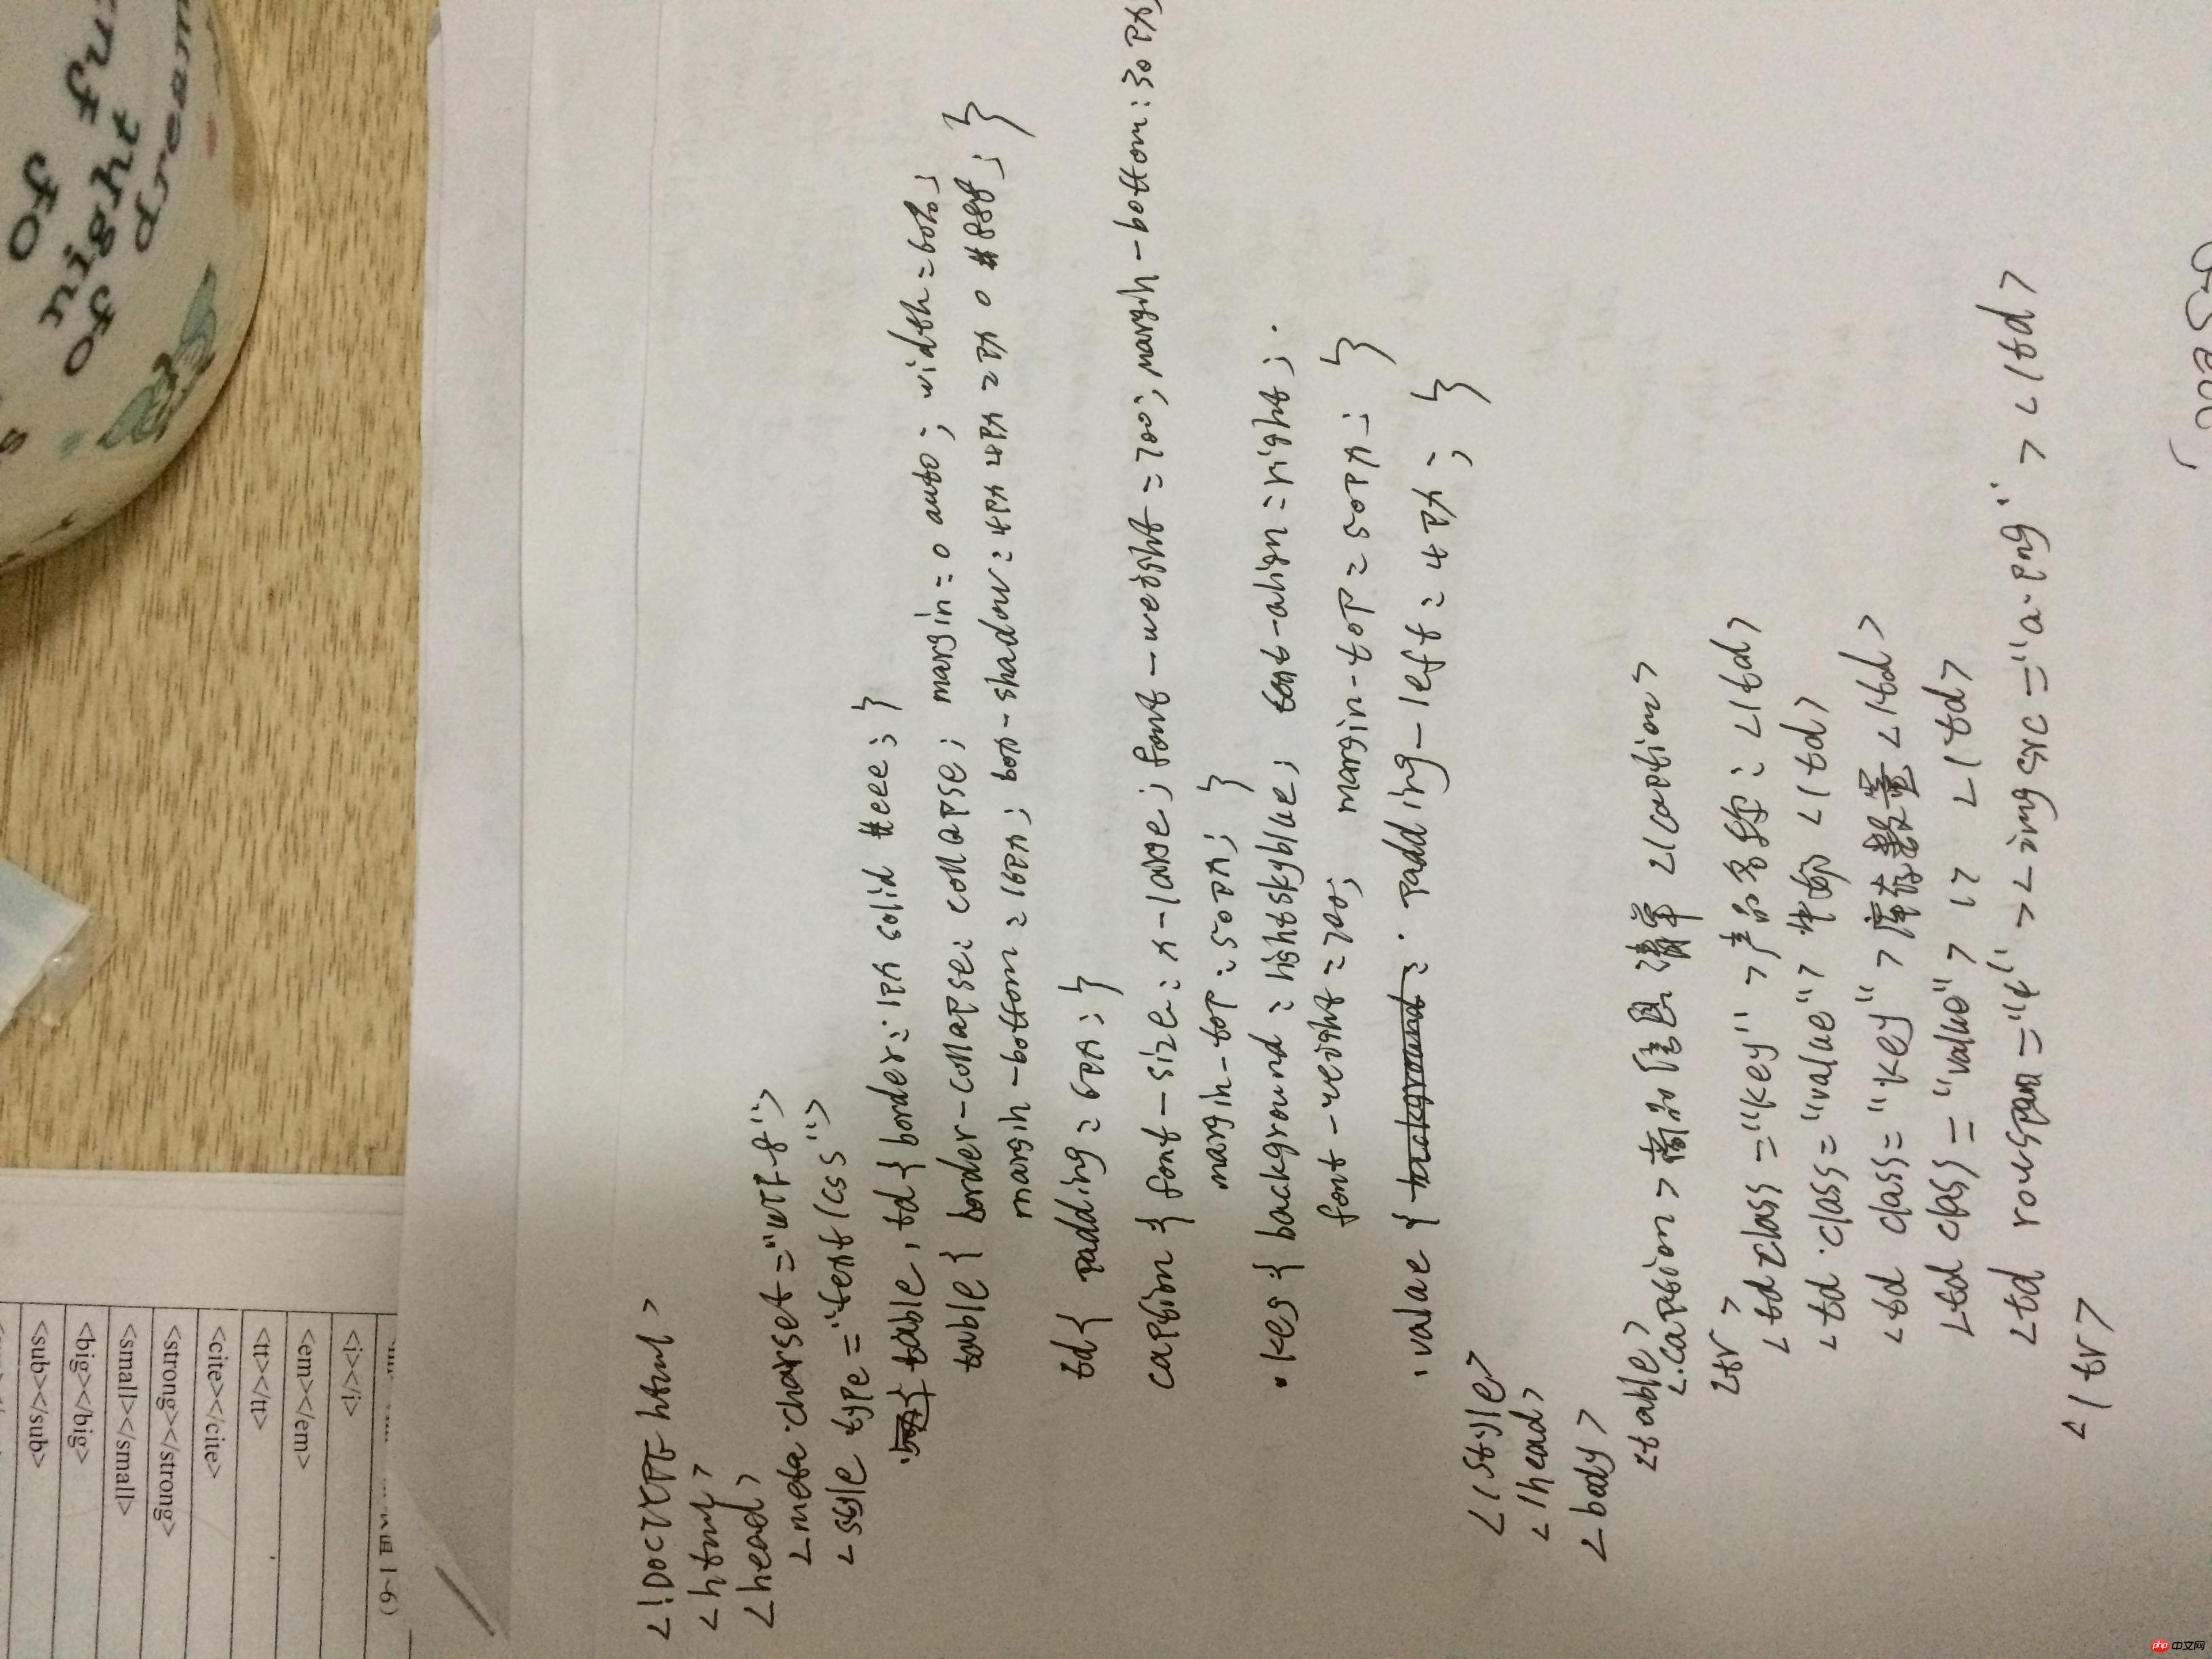 <!DOCTYPE html>
<html>
<head>
<meta charset="UTF-8">
<style type="text/css">
table, td { border: 1px solid #eee; }
table { border-collapse: collapse; margin: 0 auto; width: 60%;
margin-bottom: 16px; box-shadow: 4px 4px 2px 0 #888; }
td { padding: 6px; }
caption { font-size: x-large; font-weight: 700; margin-bottom: 30px;
margin-top: 50px; }
.key { background: lightskyblue; text-align: right;
font-weight: 700; margin-top: 50px; }
.value { background: padding-left: 4px; }
</style>
</head>
<body>
<table>
<caption>商品信息清单</caption>
<tr>
<td class="key">产品名称:</td>
<td class="value"></td>
<td class="key">库存数量</td>
<td class="value">12</td>
<td rowspan="4"><img src="a.png"></td>
</tr>
of
night
of
dream
1~6)
<i></i>
<em></em>
<tt></tt>
<cite></cite>
<strong></strong>
<small></small>
<big></big>
<sub></sub>
php中文网